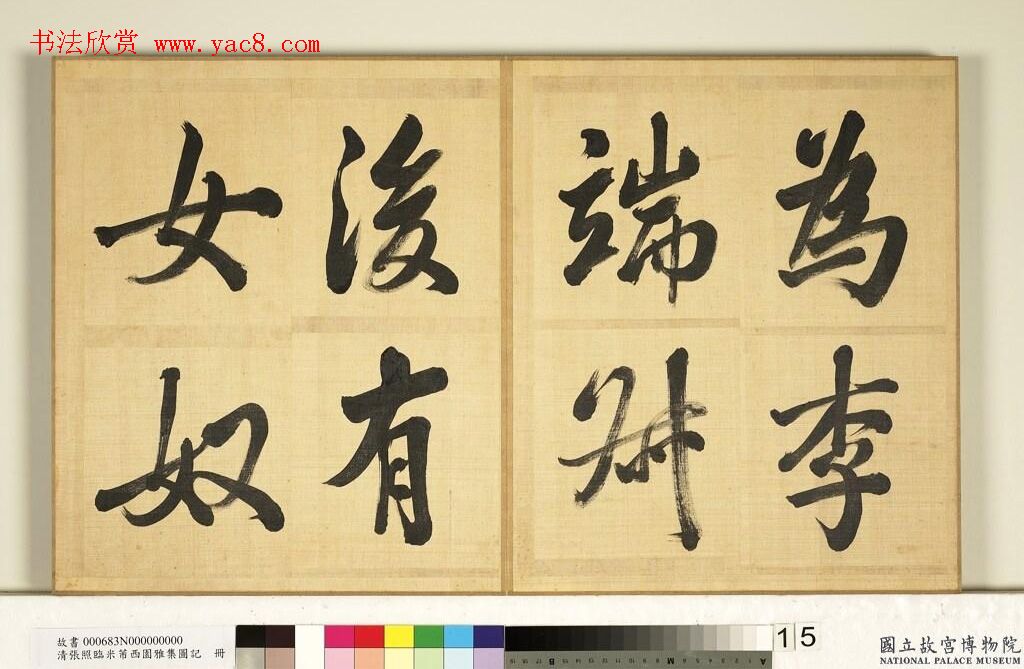 书法欣赏 www.yac8.com
為李
端叔
後有
女奴
故書 000683N000000000
清張照臨米芾西園雅集圖記 冊
15
國立故宮博物院
NATIONAL PALACE MUSEUM